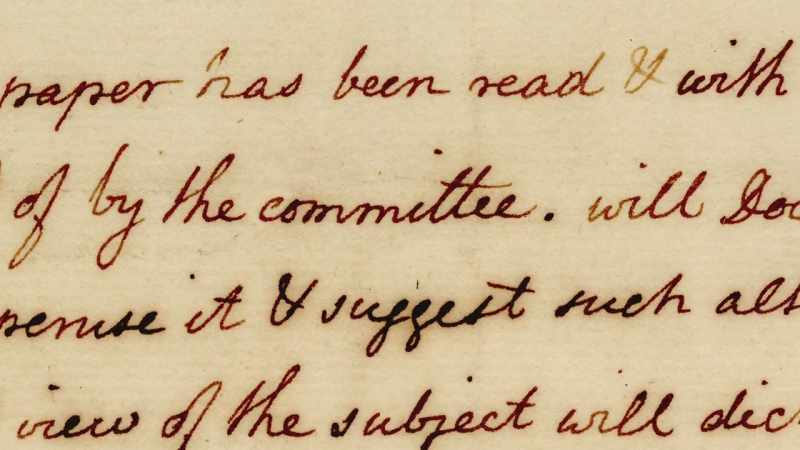 paper has been read & with
of by the committee. will Doc
peruse it & suggest such alt
view of the subject will dict